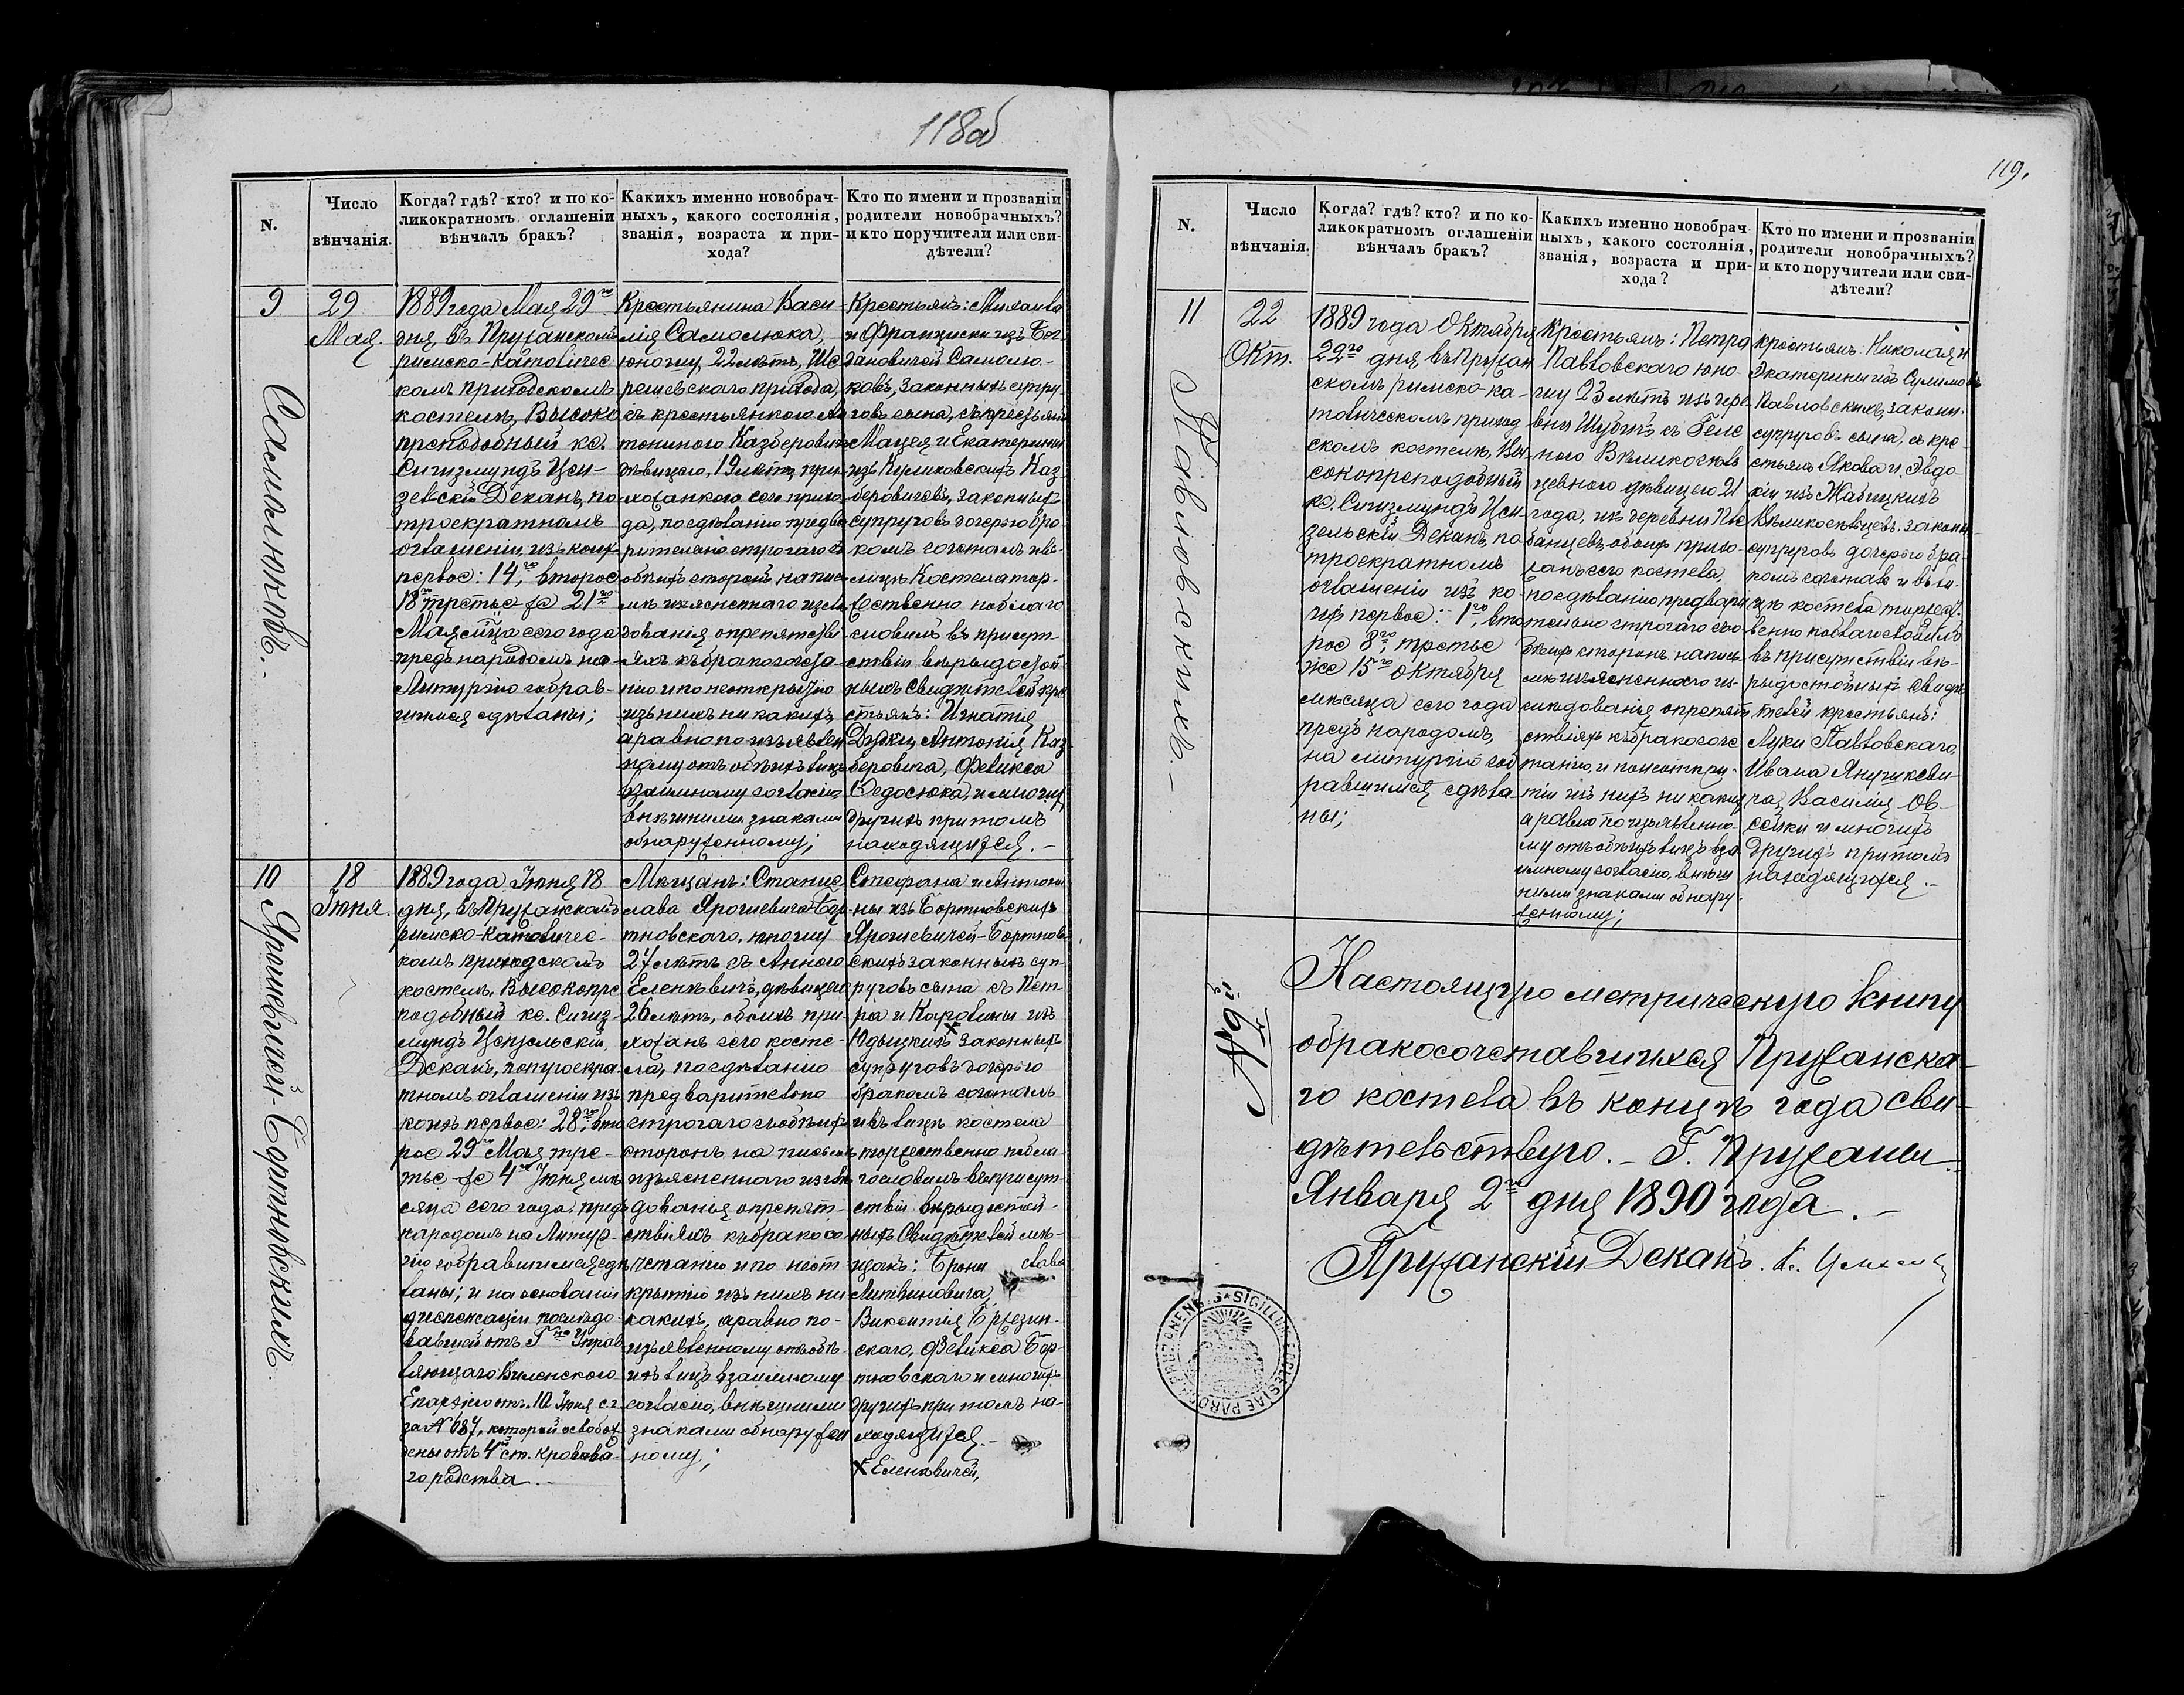 118об
N.
Число
вѣнчанія.
Когда? гдѣ? кто? и по ко-
ликократномъ оглашеніи
вѣнчалъ бракъ?
Какихъ именно новобрач-
ныхъ, какого состоянія,
званія, возраста и при-
хода?
Кто по имени и прозванію
родители новобрачныхъ?
и кто поручители или сви-
дѣтели?
9
29
Мая.
Самолюковъ.
1889 года Мая 29го
дня, въ Пружанскомъ
римско-католичес-
комъ приходскомъ
костелѣ, Высоко
преподобный кс.
Сигизмундъ
Деканъ, по
троекратномъ
оглашеніи, изъ коихъ
первое: 14го, второе
18го третье же 21го
Мая сего года
предъ народомъ на
Литургію собрав-
шимся сдѣланы;
Крестьянина Васи-
лія Самолюка,
юношу 22 лѣтъ, Ше
решевскаго прихода,
съ крестьянкою Ан
тониною Казберовичъ
дѣвицею, 19 лѣтъ, при
хожанкою сего прихо
да, по сдѣланіи предва
рительно строгаго съ
обѣихъ сторонъ на пись
мѣ изъясненнаго изслѣ
дованія о препятстві
яхъ къ бракосочета
нію и по неоткрытію
изъ нихъ ни какихъ
а равно по изъявлен
ному отъ обѣихъ лицъ
взаимному согласію,
внѣшними знаками
обнаруженному;
Крестьянъ: Михаила
и Франциски изъ Бог-
дановичей Самолю-
ковъ, законныхъ супру
говъ сына, съ крестьянъ
Мацея и Екатерины
изъ Куликовскихъ Каз
беровичевъ, законныхъ
супруговъ дочерью бра
комъ сочеталъ и въ
лицѣ Костела тор-
жественно поблаго
словилъ въ присут-
ствіи вѣрыдостой-
ныхъ Свидѣтелей кре
стьянъ: Игнатія
Дудки, Антонія Каз
беровича, Феликса
Федосюка, и многихъ
другихъ при томъ
находящихся. –
10
18
Іюня.
Ярошевичей-Бортновскихъ
1889 года, Іюня 18
дня, въ Пружанскомъ
римско-католичес-
комъ приходскомъ
костелѣ, Высокопре
подобный кс. Сигиз-
мундъ
Деканъ, по троекра-
тномъ оглашеніи изъ
коихъ первое: 28го, вто
рое 29го Мая тре-
тье же 4го Іюня мѣ
сяца сего года, предъ
народомъ на Литур-
гію собравшимся сдѣ
ланы; и на основаніи
диспензаціи послѣдо-
вавшей отъ Гна Управ
ляющаго Виленскою
Епархіею отъ 10 Іюня с.г.
за № 687, которой освобож
дены отъ 4й ст. кровнаго
го родства. –
Мѣщанъ: Станис
лава Ярошевича-Бор-
тновскаго, юношу
27 лѣтъ съ Анною
Еленкевичъ, дѣвицею
26 лѣтъ, обоихъ при-
хожанъ сего косте-
ла, по сдѣланію
предварительно
строгаго съ обѣихъ
сторонъ на письмѣ
изъясненнаго изслѣ
дованія о препят-
ствіяхъ къ бракосо
четанію и по неот-
крытію изъ нихъ ни
какихъ, а равно по-
изъявленному отъ обѣ-
ихъ лицъ взаимному
согласію, внѣшними
знаками обнаружен
ному;
Стефана и Антони
ны изъ Бортновскихъ
Ярошевичей-Бортнов-
скихъ законныхъ суп-
руговъ сына съ Пет-
ра и Каролины изъ
Юдыцкихъ х законныхъ
супруговъ дочерью
бракомъ сочеталъ
и въ лицѣ костела
торжественно побла-
гословилъ въ присут-
ствіи вѣрыдостой-
ныхъ Свидѣтелей мѣ-
щанъ: Брони слава
Литвиновича,
Викентія Брезин-
скаго, Феликса Бор-
тновскаго и многихъ
другихъ при томъ на-
ходящихся. –
х Еленкевичей,
119.
N.
Число
вѣнчанія.
Когда? гдѣ? кто? и по ко-
ликократномъ оглашеніи
вѣнчалъ бракъ?
Какихъ именно новобрач-
ныхъ, какого состоянія,
званія, возраста и при-
хода?
Кто по имени и прозваніи
родители новобрачныхъ?
и кто поручители или сви-
дѣтели?
11
22
Окт.
Павловскихъ. –
1889 года Октября
22го дня въ Пружан
скомъ римско-ка-
толическомъ приход
скомъ костелѣ, Вы
сокопреподобный
кс. Сигизмундъ
Деканъ, по
троекратномъ
оглашеніи изъ ко-
ихъ первое: 1го, вто
рое 8го, третье
же 15го Октября
мѣсяца сего года
предъ народомъ,
на литургіи соб
равшимся сдѣла
ны;
Крестьянъ: Петра
Павловскаго юно-
шу 23 лѣтъ изъ дере
вни Шубичъ съ
дѣвицею 21
года, изъ деревни
обоихъ прихо-
жанъ сего костела,
по сдѣланію предвари
тельно строгаго съ о
бѣихъ сторонъ на пись
мѣ изъясненнаго из-
слѣдованія о препят
ствіяхъ къ бракосоче
танію, и по неоткры-
тіи изъ нихъ ни какихъ
а равно по изъявленно-
му отъ обѣихъ лицъ вза
имному согласію, внѣш
ними знаками обнару
женному;
Крестьянъ: Николая и
Екатерины изъ
Павловскихъ, законн.
супруговъ сына, съ кре-
стьянъ Якова и Эвдо-
кіи изъ Жабицкихъ
законн
супруговъ дочерью бра-
комъ сочеталъ и въ ли-
цѣ костела торжест-
венно поблагословилъ
въ присутствіи вѣ-
рыдостойныхъ Свидѣ
телей крестьянъ:
Луки Павловскаго
Ивана Янушкеви-
ча, Василія Ов-
сейки и многихъ
другихъ при томъ
находящихся. –
Настоящую метрическую книгу
обракосочетавшихся Пружанска-
го костела въ концѣ года сви-
дѣтельствую. – Г. Пружаны
Января 2го дня 1890 года. –
Пружанскій Деканъ. К.
SIGILLUM ECCLESIAE PAROCH. PRUZANENSIS